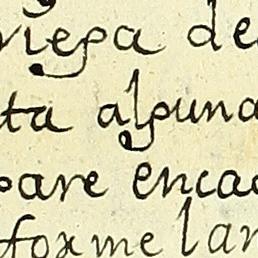 riega de
ta alguna
pare enca
forme lar